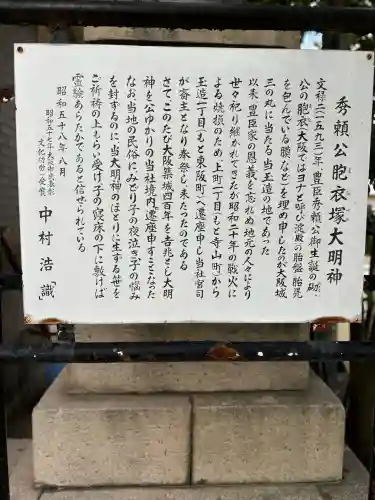 秀頼公胞衣塚大明神
文禄二(一五九三)年、豊臣秀頼公御生誕の砌、
公の胞衣(大阪ではヨナと呼び淀殿の胎盤・胎児
を包んでいる膜など)を埋め申したのが大阪城
三の丸に当たる当玉造の地であった
以来、豊臣家の恩義を忘れぬ地元の人々により
世々祀り継がれてきたが昭和二十年の戦火に
よる焼損のため、上町一丁目(もと寺山町)から
玉造一丁目(もと東阪町)へ遷座申し当社宮司
が斎主となり奉祭し来たったのである
さて、このたび大阪築城四百年を吉兆とし大明
神を公ゆかりの当社境内へ遷座申すこととなった
なお当地の民俗に、みどり子の夜泣き、子の悩み
を封ずるのに当大明神のほとりに生する笹を
ご祈祷の上もらい受け子の寝床の下に敷けば
霊験あらたかであると信ぜられている
昭和五十八年八月
昭和五十七年大阪市民表彰
文化功労受賞
中村 浩 識